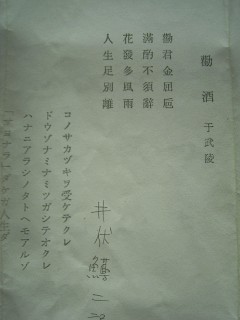 勸酒　于武陵
勸君金屈巵
滿酌不須辭
花發多風雨
人生足別離
コノサカヅキヲ受ケテクレ
ドウゾナミナミツガシテオクレ
ハナニアラシノタトヘモアルゾ
「サヨナラ」ダケガ人生ダ
井伏鱒二